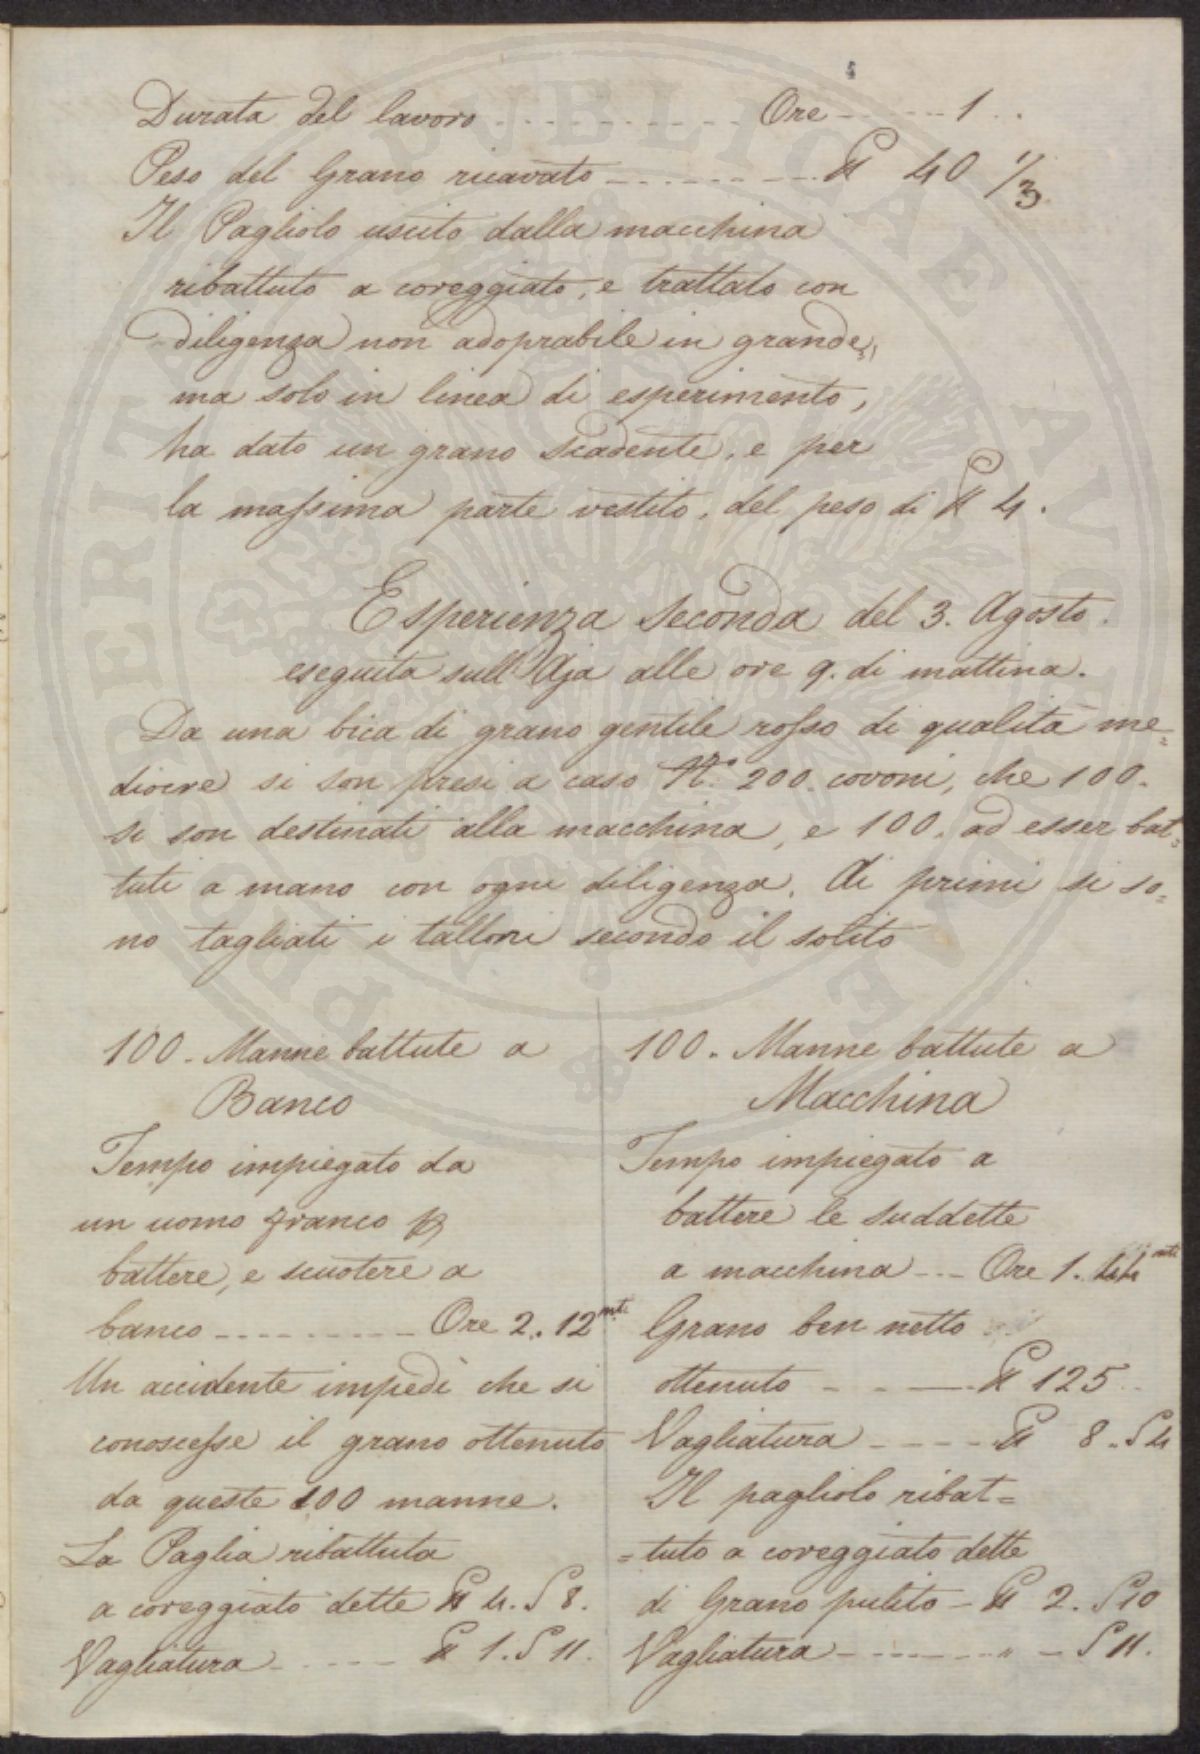 Durata del lavoro - - - - - - - - - - - Ore - - - - - 1 . .
Peso del Grano ricavato - - - - - - - - - ℔ 40 1/3
Il Pagliolo uscito dalla macchina
ribattuto a coreggiato, e trattato con
diligenza non adoprabile in grande,
ma solo in linea di esperimento,
ha dato un grano scadente, e per
la massima parte vestito, del peso di ℔ 4.
Esperienza Seconda del 3. Agosto.
eseguita sull'Aja alle ore 9. di mattina.
Da una bica di grano gentile rosso di qualità me=
diocre si son presi a caso N.° 200. covoni, che 100.
si son destinati alla macchina, e 100. ad esser bat=
tuti a mano con ogni diligenza. Ai primi si so=
no tagliati i talloni secondo il solito
100. Manne battute a
Banco
Tempo impiegato da
un uomo franco p
battere, e scuotere a
banco - - - - - - - - - Ore 2. 12 mti
Un accidente impedì che si
conoscesse il grano ottenuto
da queste 100 manne.
La Paglia ribattuta
a coreggiato dette ℔ 4. S 8.
Vagliatura - - - - - - ℔ 1. S 11.
100. Manne battute a
Macchina
Tempo impiegato a
battere le suddette
a macchina - - - Ore 1. 44 mti
Grano ben netto
ottenuto - - - - ℔ 125
Vagliatura - - - - - ℔ 8. S 4
Il pagliolo ribat=
=tuto a coreggiato dette
di Grano pulito - ℔ 2. S 10
Vagliatura - - - - - - - " - S 11.
PROSPERITATI PUBLICAE AUGENDAE